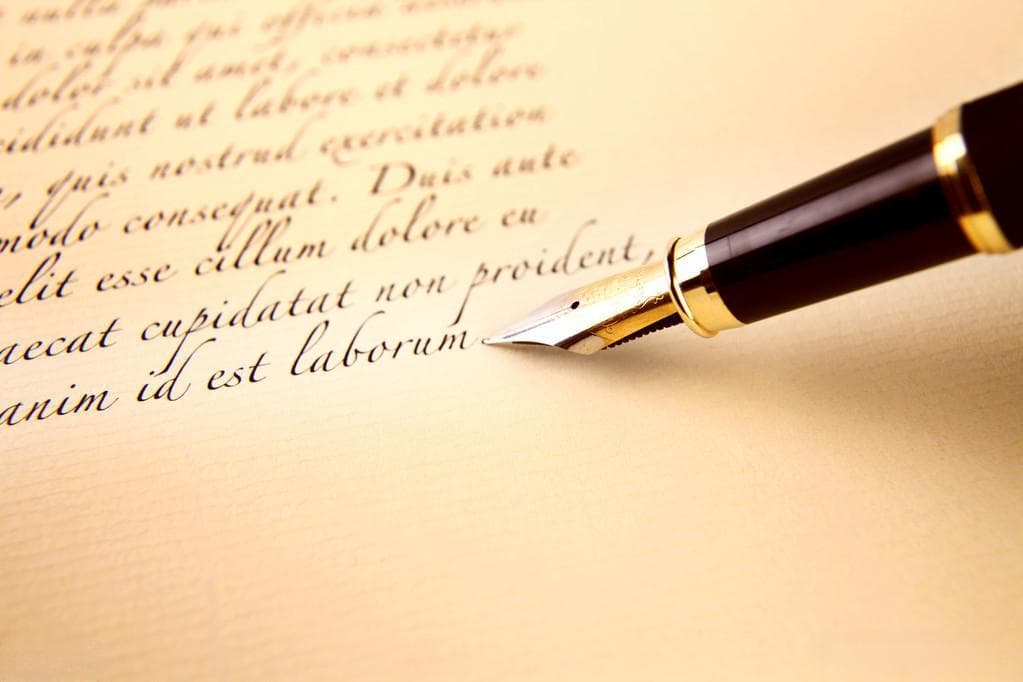 nulla
in culpa qui officia
dolor sit amet, consectetur
cididunt ut labore et dolore
, quis nostrud exercitation
modo consequat. Duis aute
elit esse cillum dolore eu
aecat cupidatat non proident,
anim id est laborum